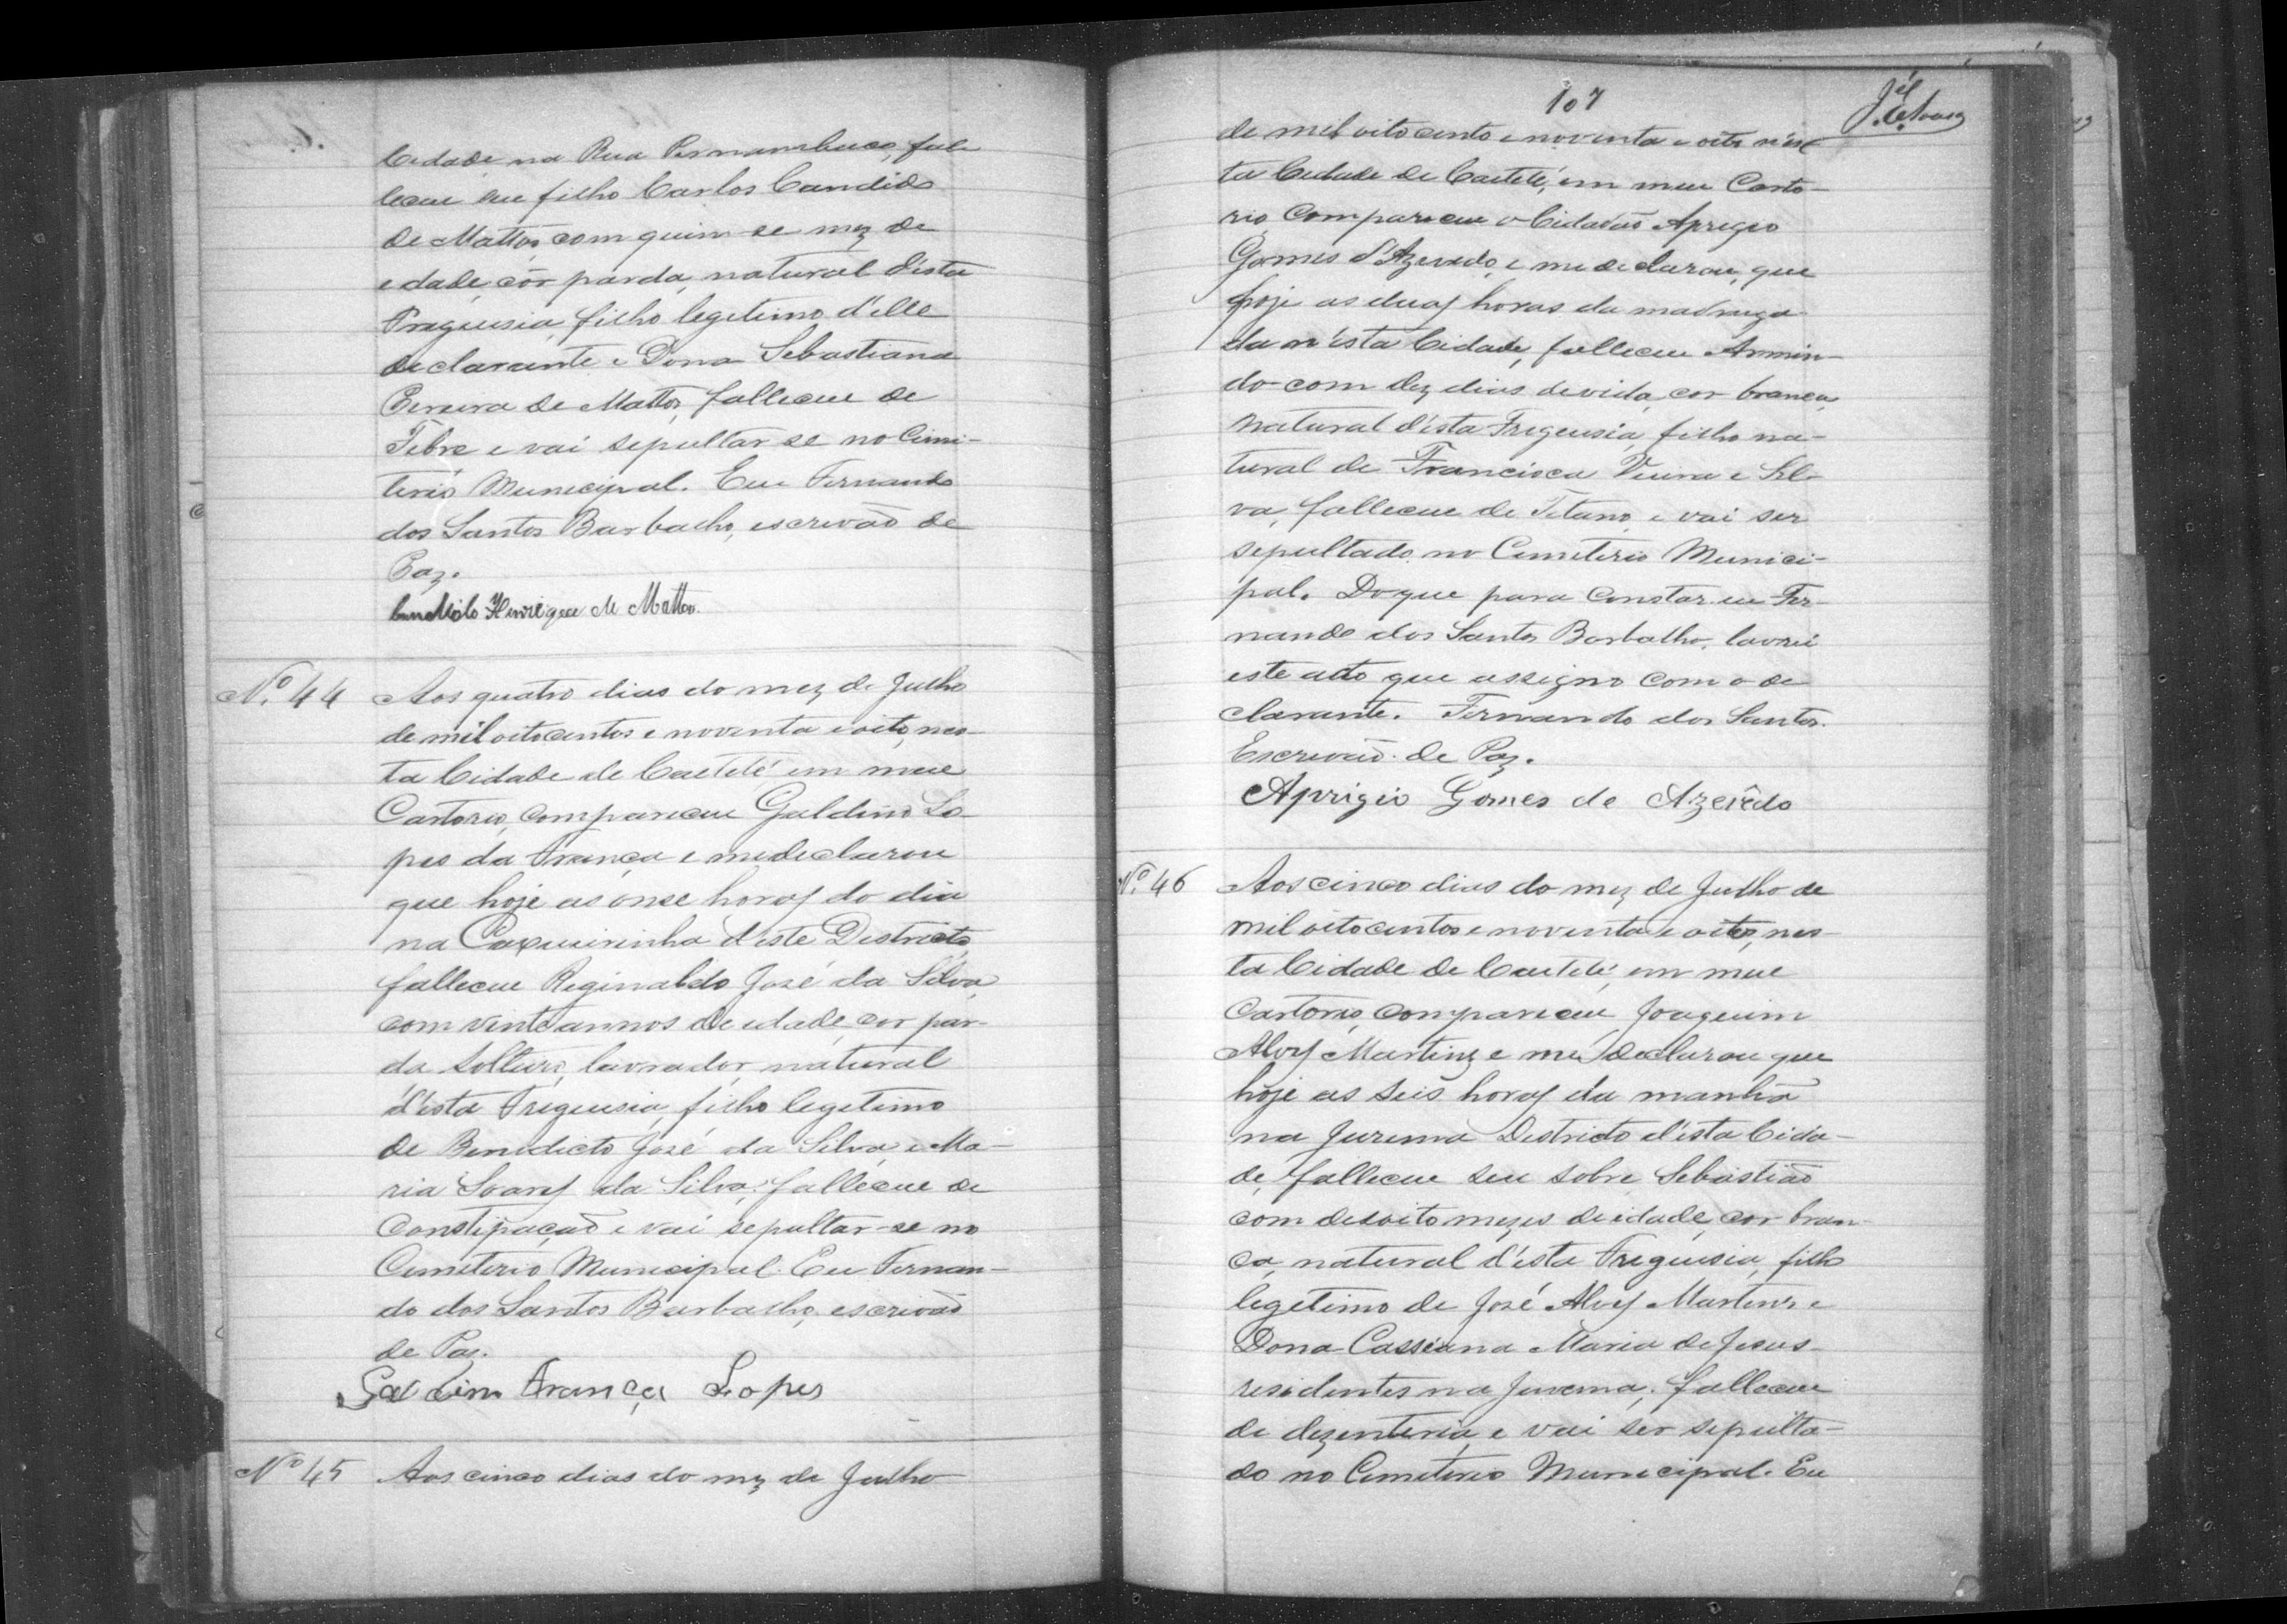 Cidade na Rua Pernambuco, fal-
leceu seu filho Carlos Candido
de Mattos, com quim-se mez de
edade, côr parda, natural d'esta
Freguesia, filho legitimo d'elle
declarante e Dona Sebastiana
Pereira de Mattos, falleceu de
Febre e vai sepultar se no Cimi-
terio Municipal. Eu Fernando
dos Santos Barbalho, escrivão de
Paz.
Candido Henrique de Mattos.
Nº. 44 Aos quatro dias do mez de Julho
de mil oitocentos e noventa e oito, nes-
ta Cidade de Caeteté em meu
Cartorio, compareceu Galdino Lo-
pes da França e me declarou
que hoje as onse horas do dia
na Caxueirinha d'este Districto,
falleceu Reginaldo José da Silva,
com vinte annos de edade, cor par-
da solteiro, lavrador, natural
d'esta Freguesia, filho legitimo
de Benedicto José da Silva e Ma-
ria Soares da Silva, falleceu de
Constipação e vai sepultar-se no
Cemiterio Municipal. Eu Fernan-
do dos Santos Barbalho, escrivão
de Paz.
Galdim França Lopes
Nº 45 Aos cinco dias do mez de Julho
107
de mil oito cento e noventa e oito n'es-
ta Cidade de Caeteté, em meu Carto-
rio Compareceu o Cidadão Aprigio
Gomes d'Azevedo, e me declarou, que
hoje as duas horas da madruga-
da n'esta Cidade, falleceu Armin-
do com dez dias de vida, cor branca,
natural d'esta Freguesia, filho na-
tural de Francisca Vieira e Sil-
va, falleceu de Tetano, e vai ser
sepultado no Cemiterio Munici-
pal. Do que para Constar eu Fer-
nando dos Santos Barbalho, lavrei
este acto que assigno com o de-
clarante. Fernando dos Santos.
Escrivão de Paz.
Aprigio Gomes de Azevêdo
Nº. 46 Aos cinco dias do mez de Julho de
mil oitocentos e noventa e oito, nes-
ta Cidade de Caeteté, em meu
Cartorio, compareceu Joaquim
Alves Martins e me declarou que
hoje as seis horas da manhã
na Jurema Districto d'esta Cida-
de, falleceu seu sobre Sebastião
com desoito mezes de idade, cor bran-
ca, natural d'esta Freguesia, filho
legetimo de José Alves Martins e
Dona Cassiana Maria de Jesus
residentes na Jurema, falleceu
de dezenteria, e vai ser sepulta-
do no Cemiterio Municipal. Eu